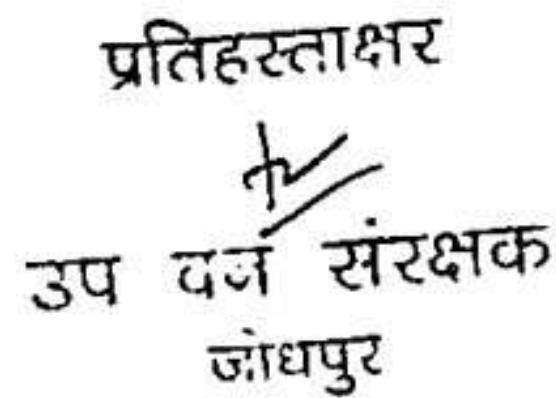 प्रतिहस्ताक्षर
उप वन संरक्षक
जोधपुर